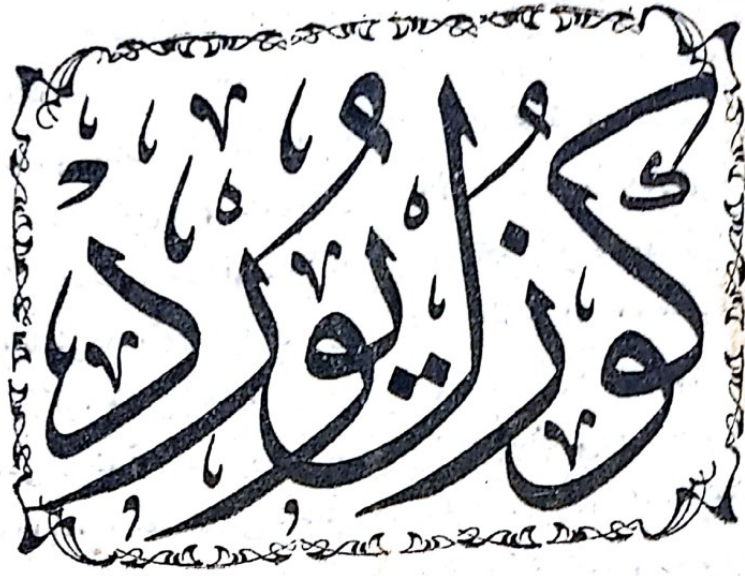 كوزل يورد